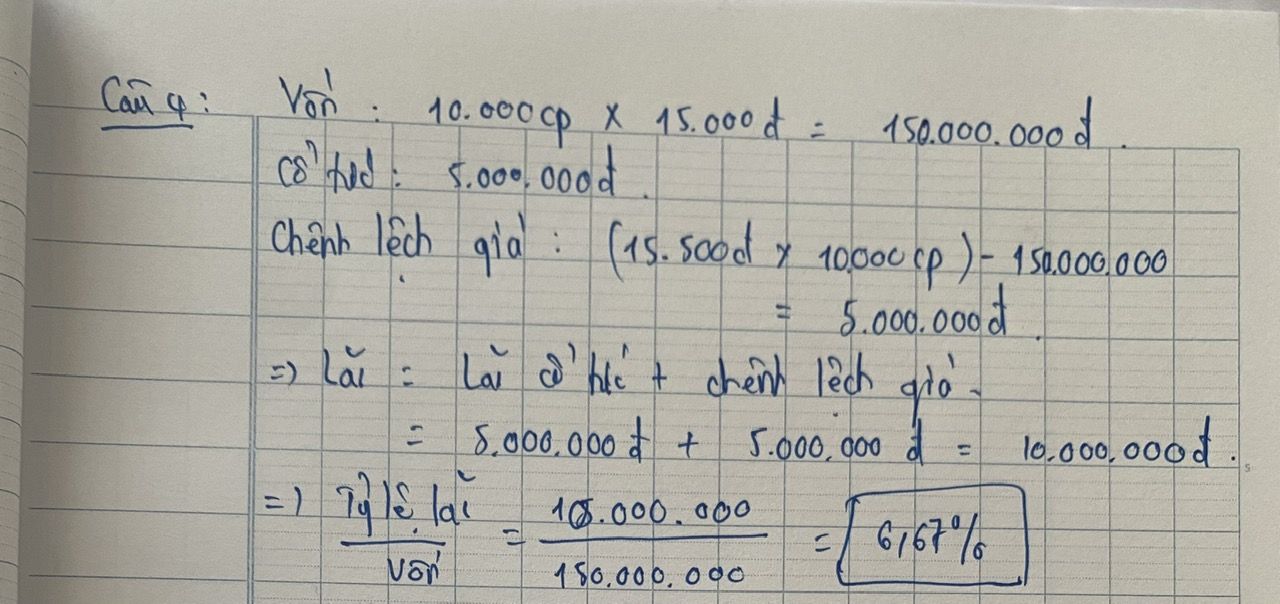 Câu 4: Vốn: 10.000cp x 15.000đ = 150.000.000đ.
Cổ tức: 5.000.000đ.
Chênh lệch giá: (15.500đ x 10.000 cp) - 150.000.000
= 5.000.000đ.
=> Lãi = Lãi cổ tức + chênh lệch giá.
= 5.000.000đ + 5.000.000đ = 10.000.000đ.
=> Tỷ lệ lãi / vốn = 10.000.000 / 150.000.000 = 6,67%